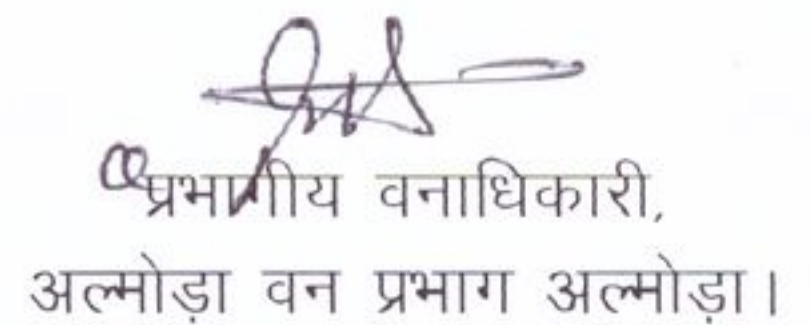 प्रभागीय वनाधिकारी,
अल्मोड़ा वन प्रभाग अल्मोड़ा।